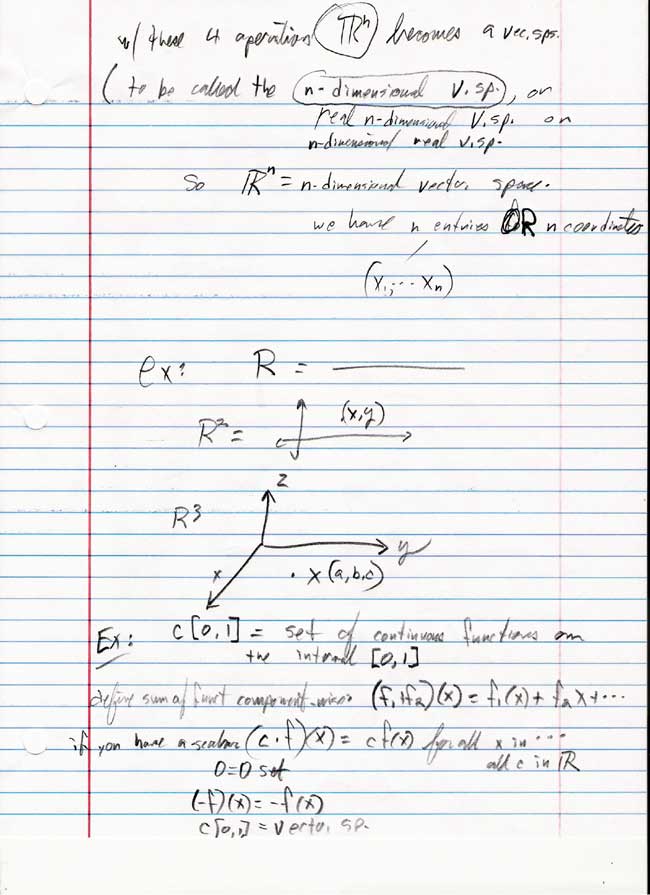 w/ these 4 operations ℝⁿ becomes a vec. sps.
(to be called the n-dimensional v.sp.), or
real n-dimensional v.sp. or
n-dimensional real v.sp.
So ℝⁿ = n-dimensional vector space.
we have n entries OR n coordinates
(x₁, ... xₙ)
ex: R =
R² = (x,y)
z
R3
y
x
x (a,b,c)
Ex: c[0,1] = set of continuous functions on
the interval [0,1]
define sum of funct component-wise (f₁+f₂)(x) = f₁(x) + f₂x + ...
if you have a scalar (c·f)(x) = cf(x) for all x in ...
all c in ℝ
0=0 set
(-f)(x) = -f(x)
c[0,1] = vector sp.